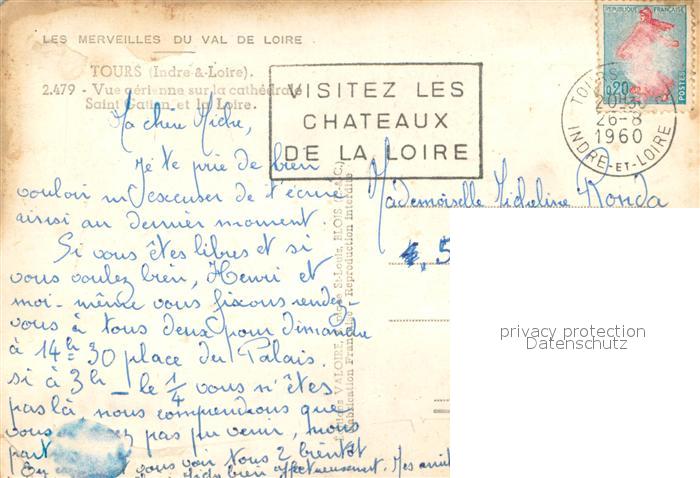 LES MERVEILLES DU VAL DE LOIRE
TOURS (Indre-&-Loire).
2.479 - Vue aérienne sur la cathédrale
Saint Gatien et la Loire.
VISITEZ LES
CHATEAUX
DE LA LOIRE
REPUBLIQUE FRANÇAISE
0,20
POSTES
TOURS
20H30
26-8
1960
INDRE-ET-LOIRE
Ma chère Miche,
Je te prie de bien
vouloir m'excuser de t'écrire
ainsi au dernier moment.
Si vous êtes libres et si
vous voulez bien, Henri et
moi-même vous fixons rendez-
vous à tous deux pour dimanche
à 14h 30 place du Palais.
si à 3h - le 1/4 vous n'êtes
pas là, nous comprendrons que
vous pas pu venir, nous
part
En vous voir tous 2 bientôt
bien affectueusement. Mes
Mademoiselle Micheline Ronda
5
VALOIRE, St-Louis, BLOIS
Reproduction interdite
privacy protection
Datenschutz